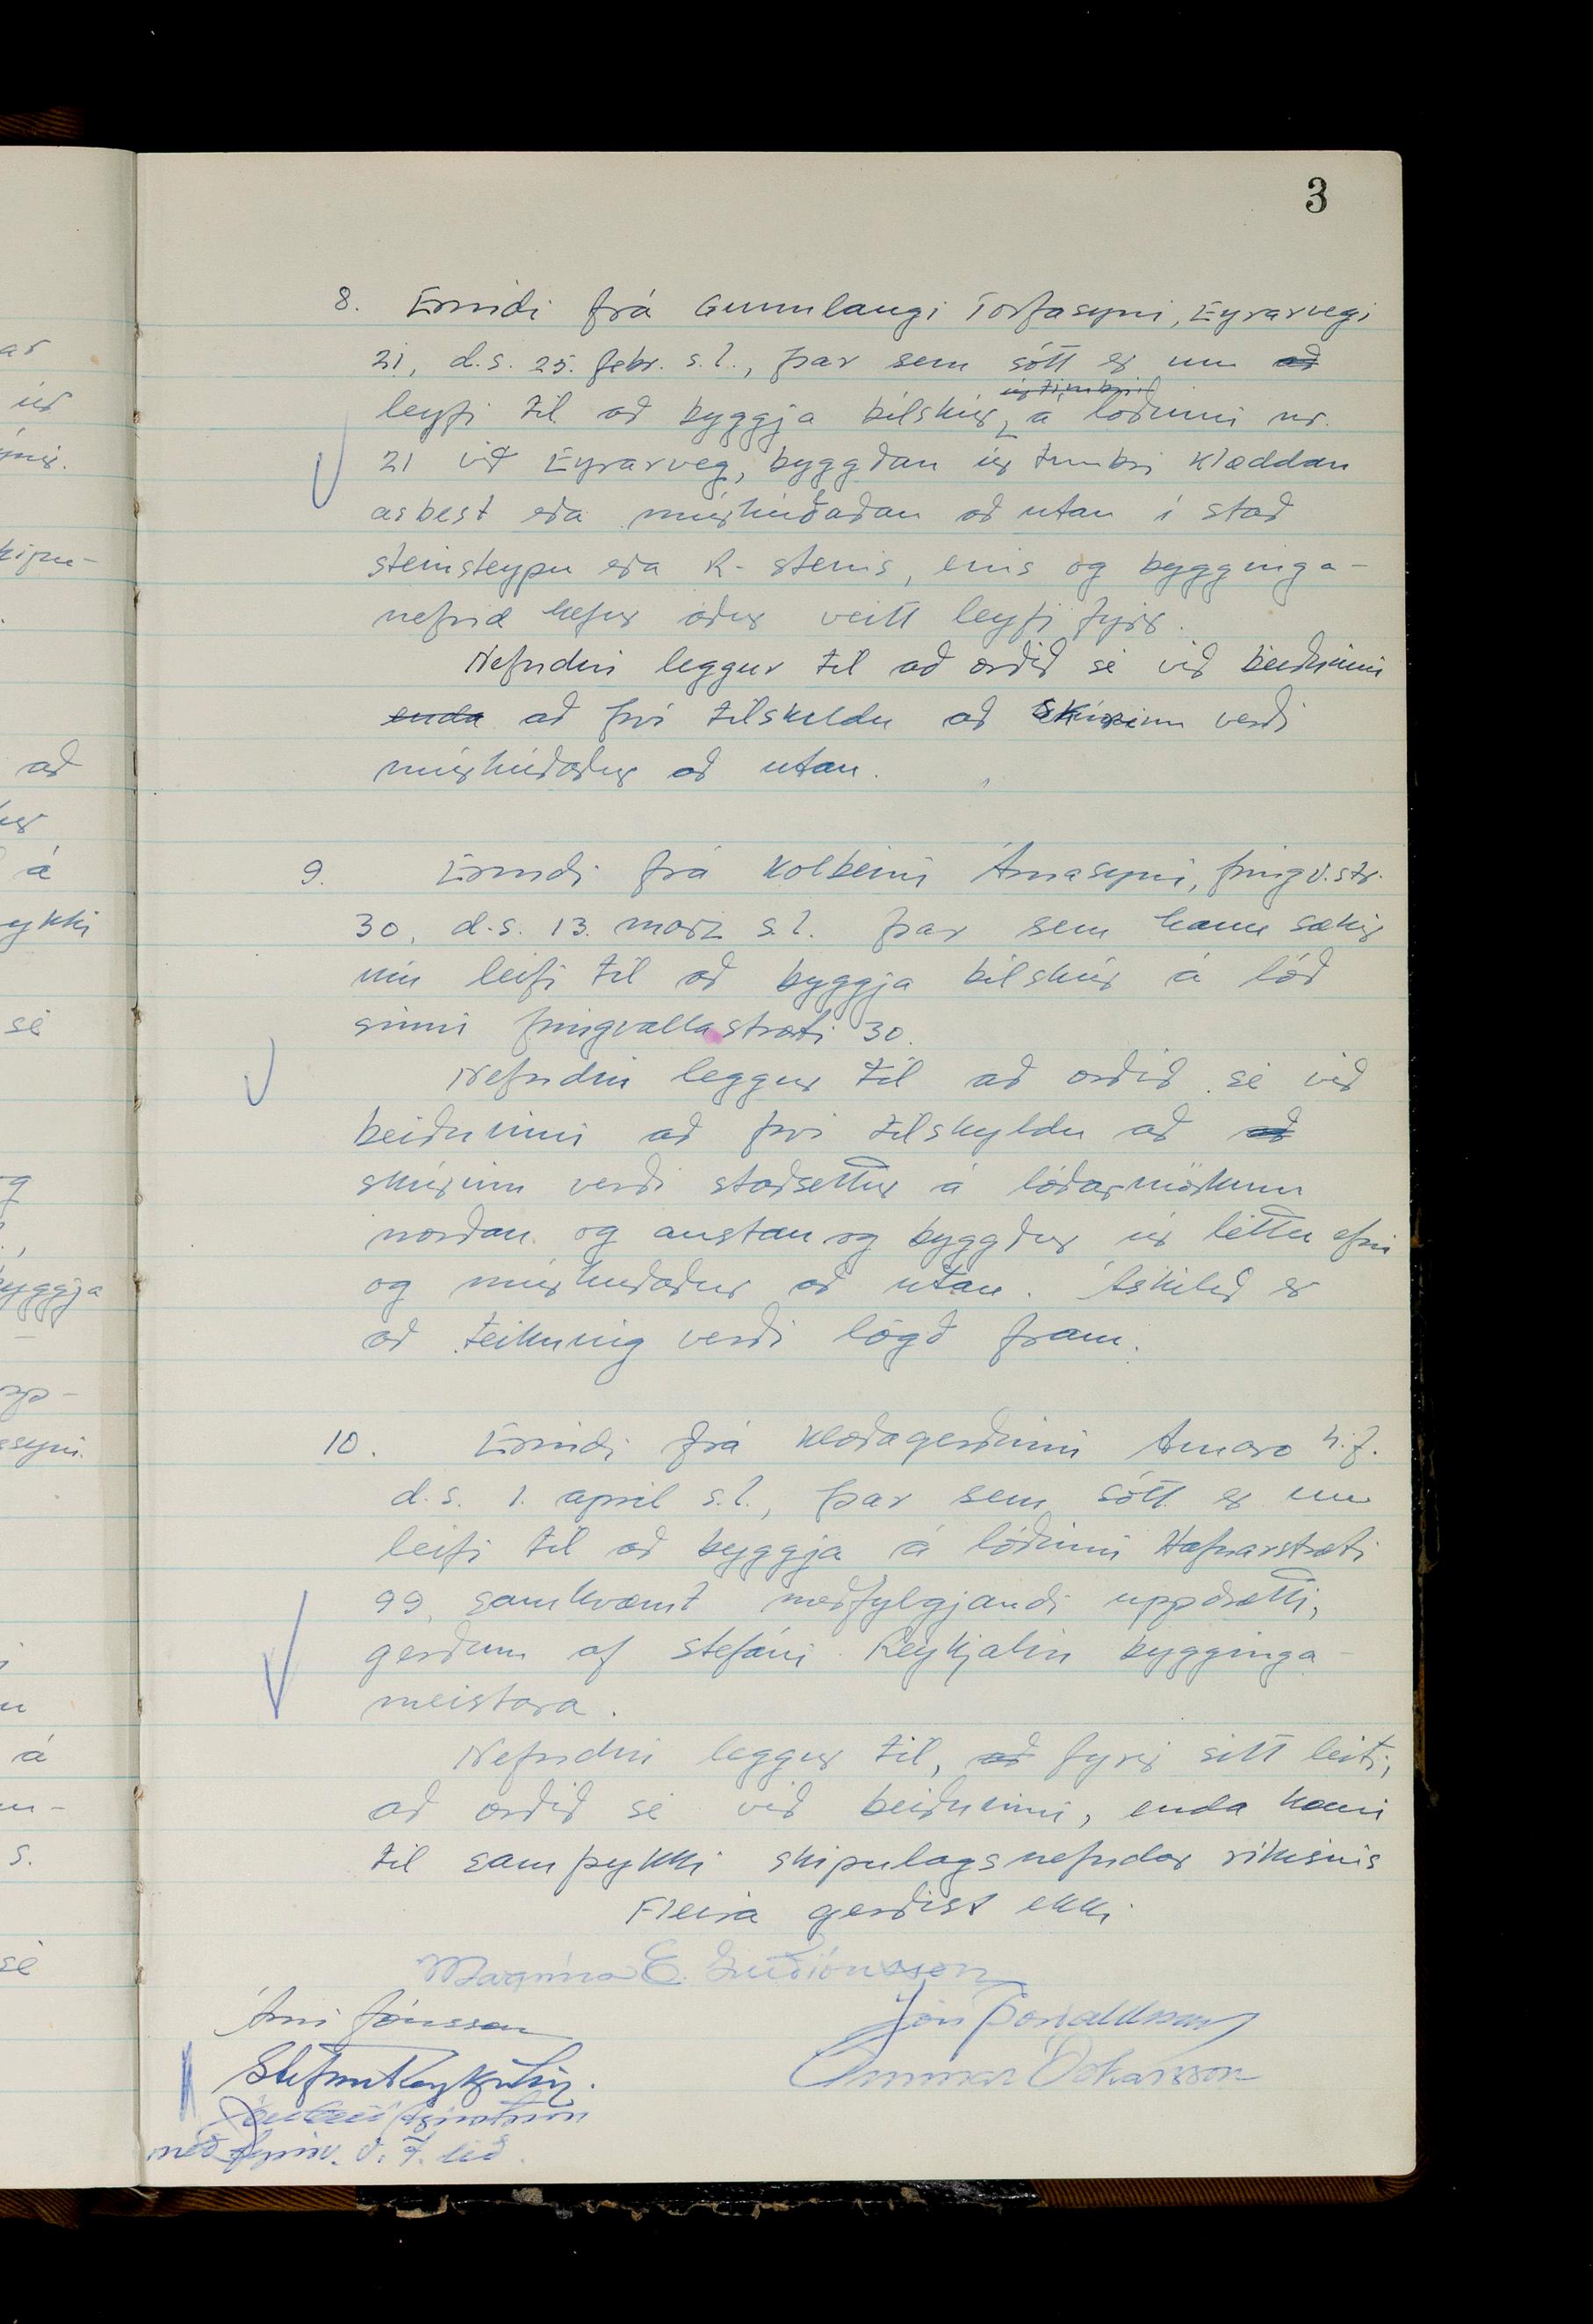 3
8. Erindi frá Gunnlaugi Torfasyni, Eyrarvegi
21, d.s. 25. febr. s.l., þar sem sótt er um að
úr timbri
leyfi til að byggja bílskúr, á lóðinni nr.
21 við Eyrarveg, byggðan úr timbri klæddan
asbest eða múrhúðaðan að utan í stað
steinsteypu eða R-steins, eins og bygginga-
nefnd hefur áður veitt leyfi fyrir.
Nefndin leggur til að orðið sé við beiðninni
enda að því tilskildu að skúrinn verði
múrhúðaður að utan.
9. Erindi frá Kolbeini Árnasyni, Þingv.str.
30, d.s. 13. marz s.l. þar sem hann sækir
um leifi til að byggja bílskúr á lóð
sinni Þingvallastræti 30.
Nefndin leggur til að orðið sé við
beiðninni að því tilskyldu að að
skúrinn verði staðsettur á lóðarmörkum
norðan og austan og byggður úr léttu efni
og múrhúðaður að utan. Áskilið er
að teikning verði lögð fram.
10. Erindi frá Klæðagerðinni Amaro h.f.
d.s. 1. apríl s.l., þar sem sótt er um
leifi til að byggja á lóðinni Hafnarstræti
99, samkvæmt meðfylgjandi uppdrætti,
gerðum af Stefáni Reykjalín bygginga-
meistara.
Nefndin leggur til, að fyrir sitt leiti,
að orðið sé við beiðninni, enda komi
til samþykki skipulagsnefndar ríkisins
Fleira gerðist ekki
Magnús E. Guðjónsson
Árni Jónsson
Jón Þorvaldsson
Stefán Reykjalín.
Gunnar Óskarsson
með fyrirv. v. 7. lið.
ar
úr
kipu-
að
á
ykki
sé
og
byggja
ssyni.
á
s.
sé